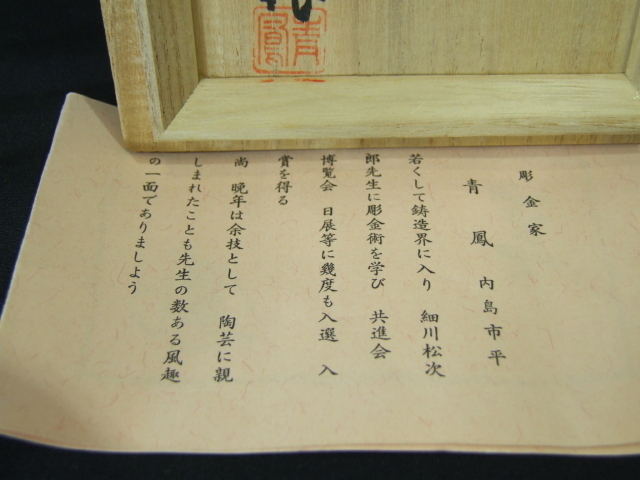 彫金家
青鳳 内島市平
若くして鋳造界に入り 細川松次
郎先生に彫金術を学び 共進会
博覧会 日展等に幾度も入選 入
賞を得る
尚 晩年は余技として 陶芸に親
しまれたことも先生の数ある風趣
の一面でありましょう
青鳳